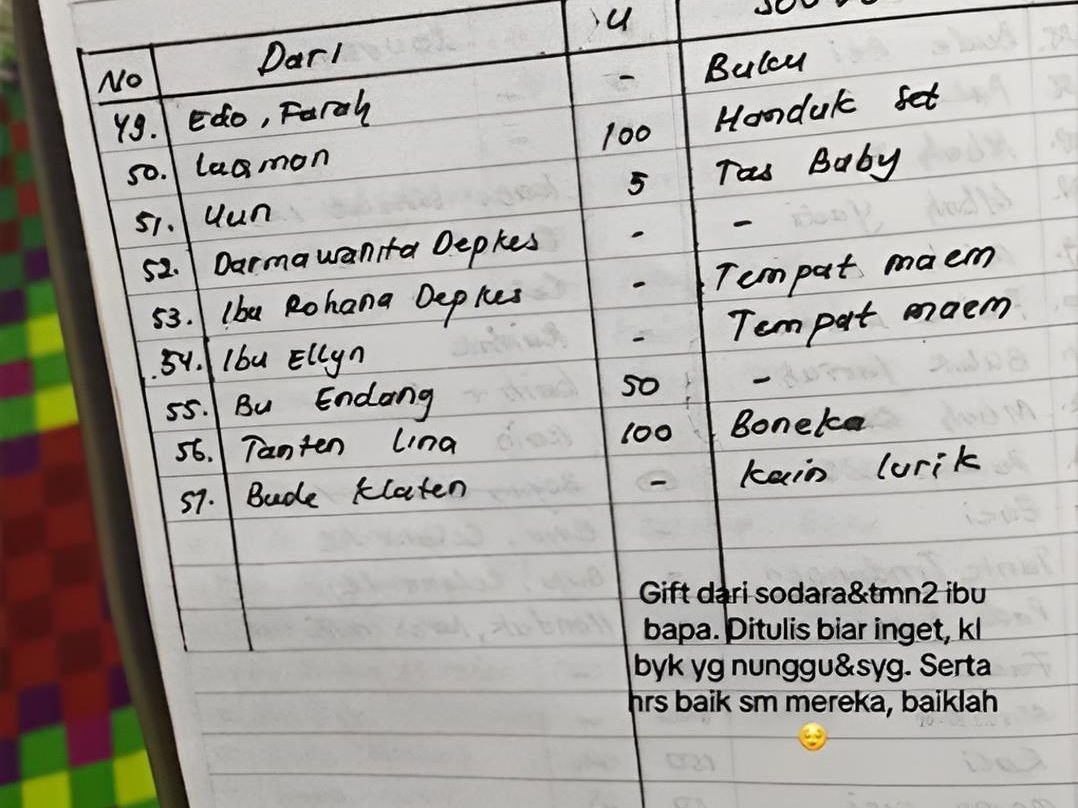 No Dari U
49. Edo, Farah - Buku
50. Luqman 100 Handuk set
51. Uun 5 Tas Baby
52. Darmawanita Depkes - -
53. Ibu Rohana Depkes - Tempat maem
54. Ibu Ellyn - Tempat maem
55. Bu Endang 50 -
56. Tanten Lina 100 Boneka
57. Bude Klaten - kain lurik
Gift dari sodara&tmn2 ibu
bapa. Ditulis biar inget, kl
byk yg nunggu&syg. Serta
hrs baik sm mereka, baiklah
😌